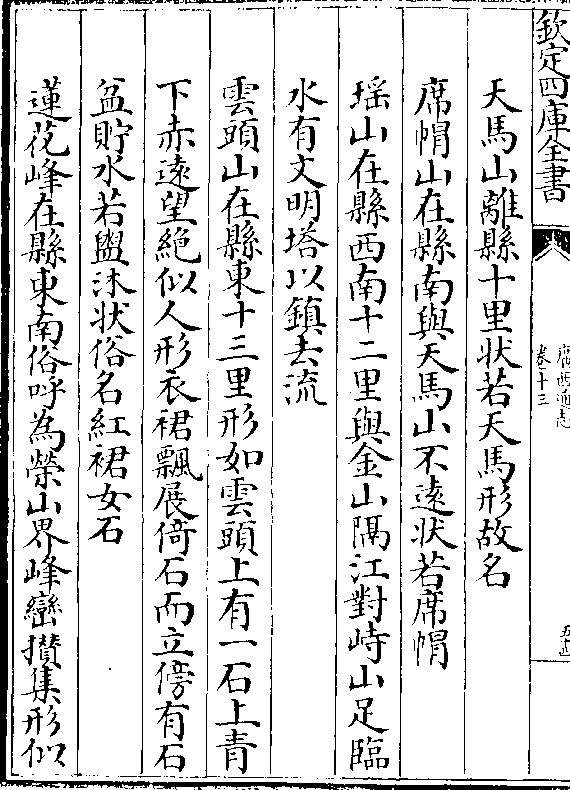 欽定四庫全書
廣西通志
卷十三
五十四
天馬山離縣十里狀若天馬形故名
席帽山在縣南與天馬山不遠狀若席帽
瑶山在縣西南十二里與金山隔江對峙山足臨
水有文明塔以鎮去流
雲頭山在縣東十三里形如雲頭上有一石上青
下赤遠望絶似人形衣裙飄展倚石而立傍有石
盆貯水若盥沐狀俗名紅裙女石
蓮花峰在縣東南俗呼為榮山界峰巒攅集形似